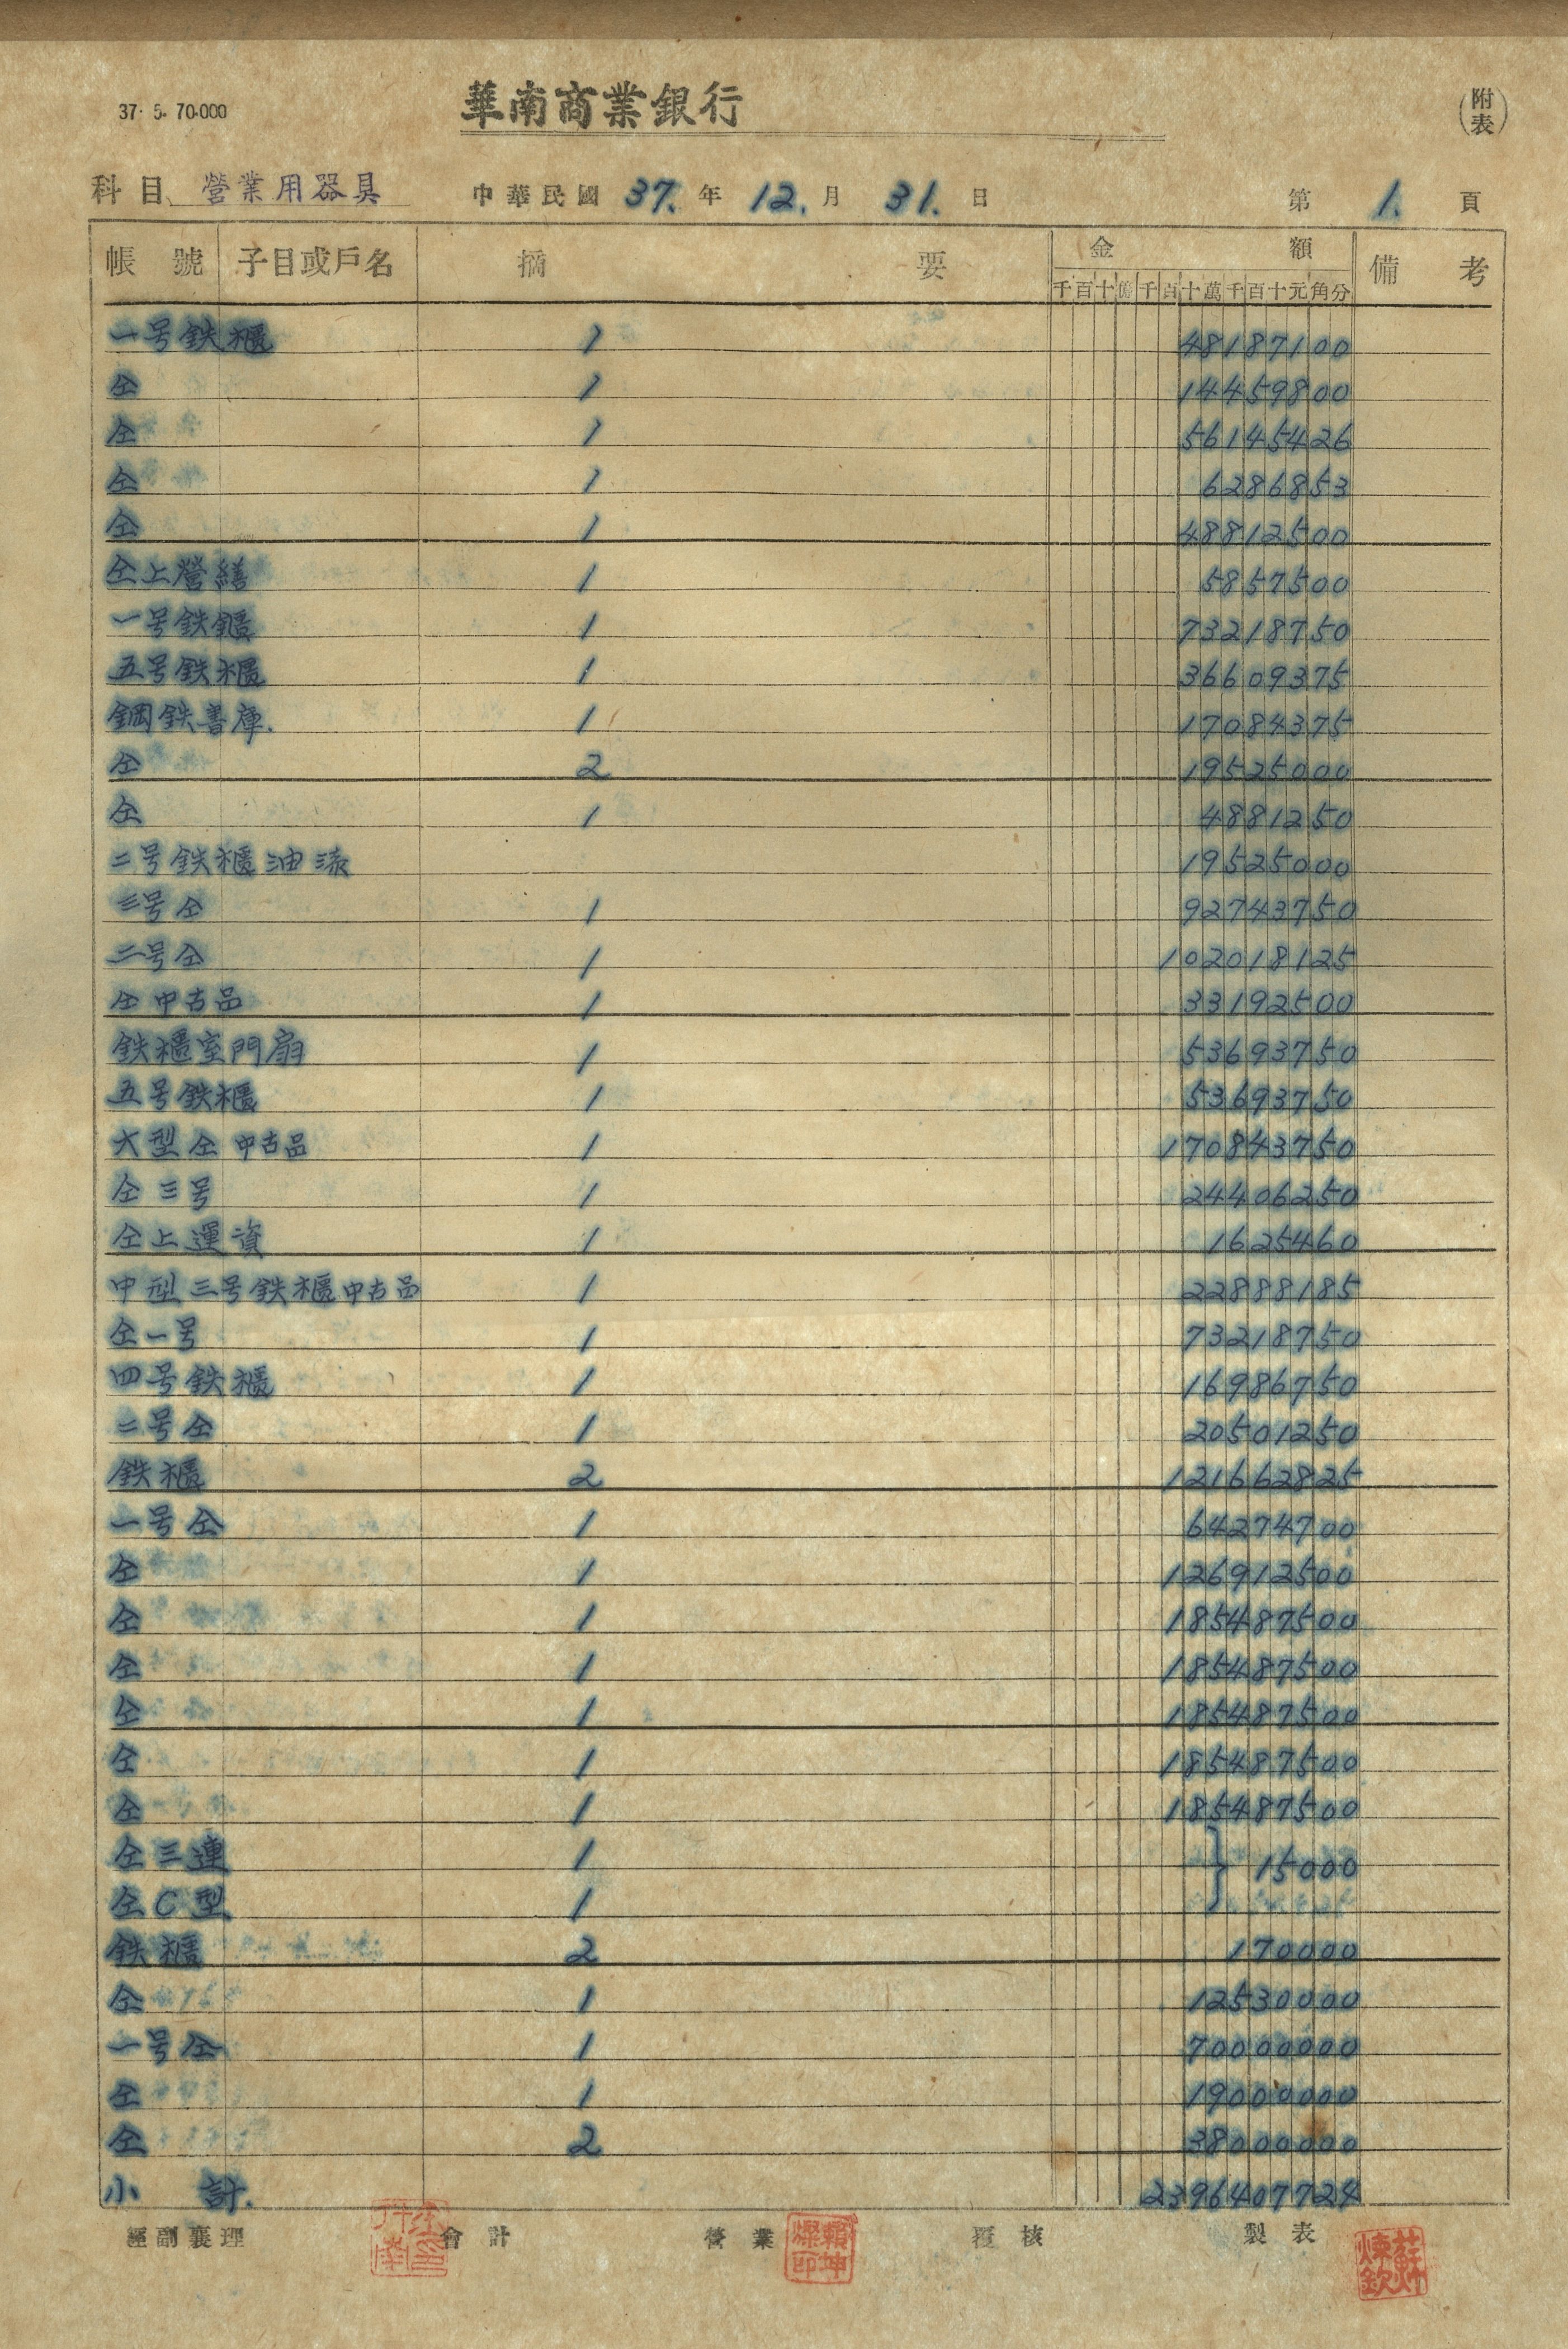 37. 5. 70.000 華南商業銀行 (附表)
科目 營業用器具 中華民國 37. 年 12. 月 31. 日 第 1. 頁
帳號 子目或戶名 摘要 金額 備考
千百十億千百十萬千百十元角分
一号鉄櫃 1 48187100
仝 1 14459800
仝 1 56145426
仝 1 6286853
仝 1 48812500
仝上營繕 1 5857500
一号鉄櫃 1 73218750
五号鉄櫃 1 36609375
鋼鉄書庫. 1 17084375
仝 2 19525000
仝 1 4881250
二号鉄櫃油漆 19525000
三号仝 1 92743750
二号仝 1 102018125
仝中古品 1 33192500
鉄櫃室門扇 1 53693750
五号鉄櫃 1 53693750
大型仝中古品 1 170843750
仝三号 1 24406250
仝上運資 1 1625460
中型三号鉄櫃中古品 1 22888185
仝一号 1 73218750
四号鉄櫃 1 16986750
二号仝 1 20501250
鉄櫃 2 121662825
一号仝 1 64274700
仝 1 126912500
仝 1 185487500
仝 1 185487500
仝 1 185487500
仝 1 185487500
仝 1 185487500
仝三連 1
} 15000
仝C型 1
鉄櫃 2 170000
仝 1 12530000
一号仝 1 70000000
仝 1 19000000
仝 2 38000000
小計. 2396407724
經副襄理 會計 營業 賴坤燦印 覆核 製表 蘇煉欽